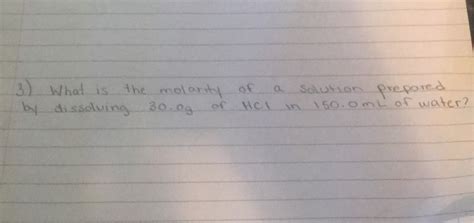 3) What is the molarity of a solution prepared
by dissolving 30.0g of HCl in 150.0mL of water?